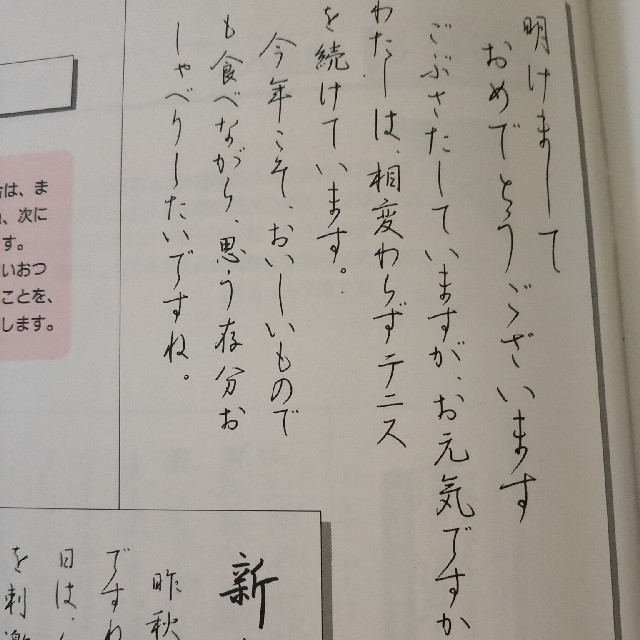 明けまして
おめでとうございます
ごぶさたしていますが、お元気ですか
わたしは、相変わらずテニス
を続けています。
今年こそ、おいしいもので
も食べながら、思う存分お
しゃべりしたいですね。
は、ま
、次に
す。
いおつ
ことを、
します。
新
昨秋
ですね
日は、
を刺激